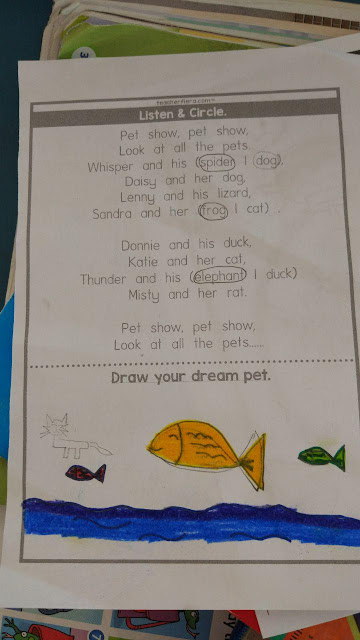 teacherfiera.com
Listen & Circle.
Pet show, pet show,
Look at all the pets.
Whisper and his (spider I dog),
Daisy and her dog,
Lenny and his lizard,
Sandra and her (frog I cat) .
Donnie and his duck,
Katie and her cat,
Thunder and his (elephant I duck)
Misty and her rat.
Pet show, pet show,
Look at all the pets......
Draw your dream pet.